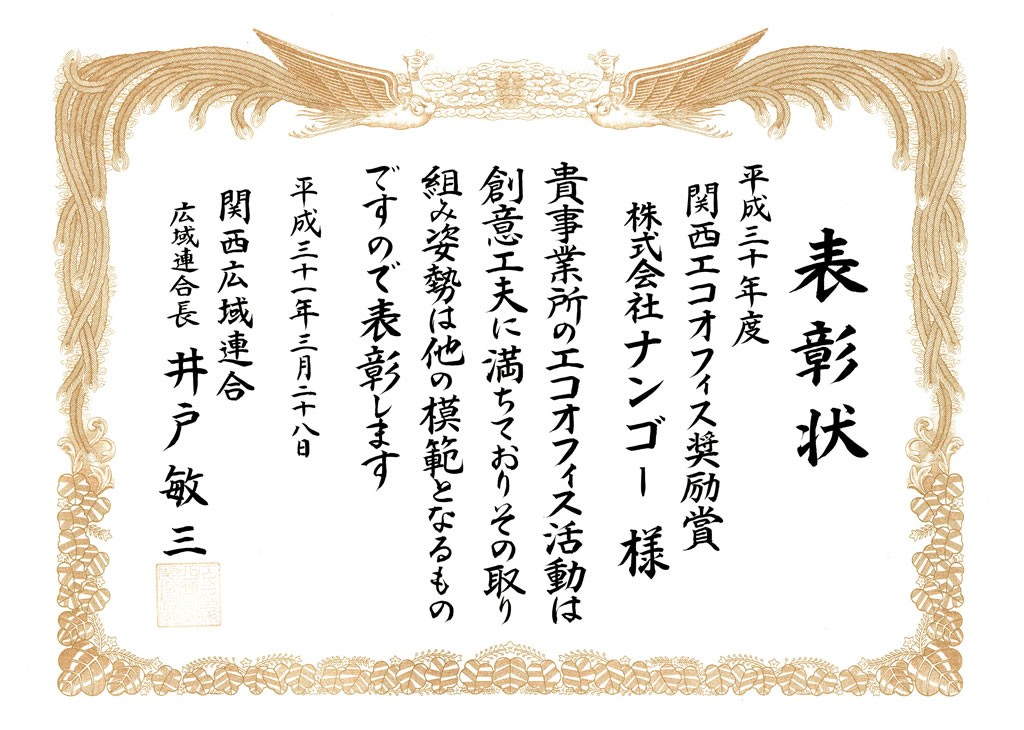 表彰状
平成三十年度
関西エコオフィス奨励賞
株式会社ナンゴー 様
貴事業所のエコオフィス活動は
創意工夫に満ちておりその取り
組み姿勢は他の模範となるもの
ですので表彰します
平成三十一年三月二十八日
関西広域連合
広域連合長 井戸敏三